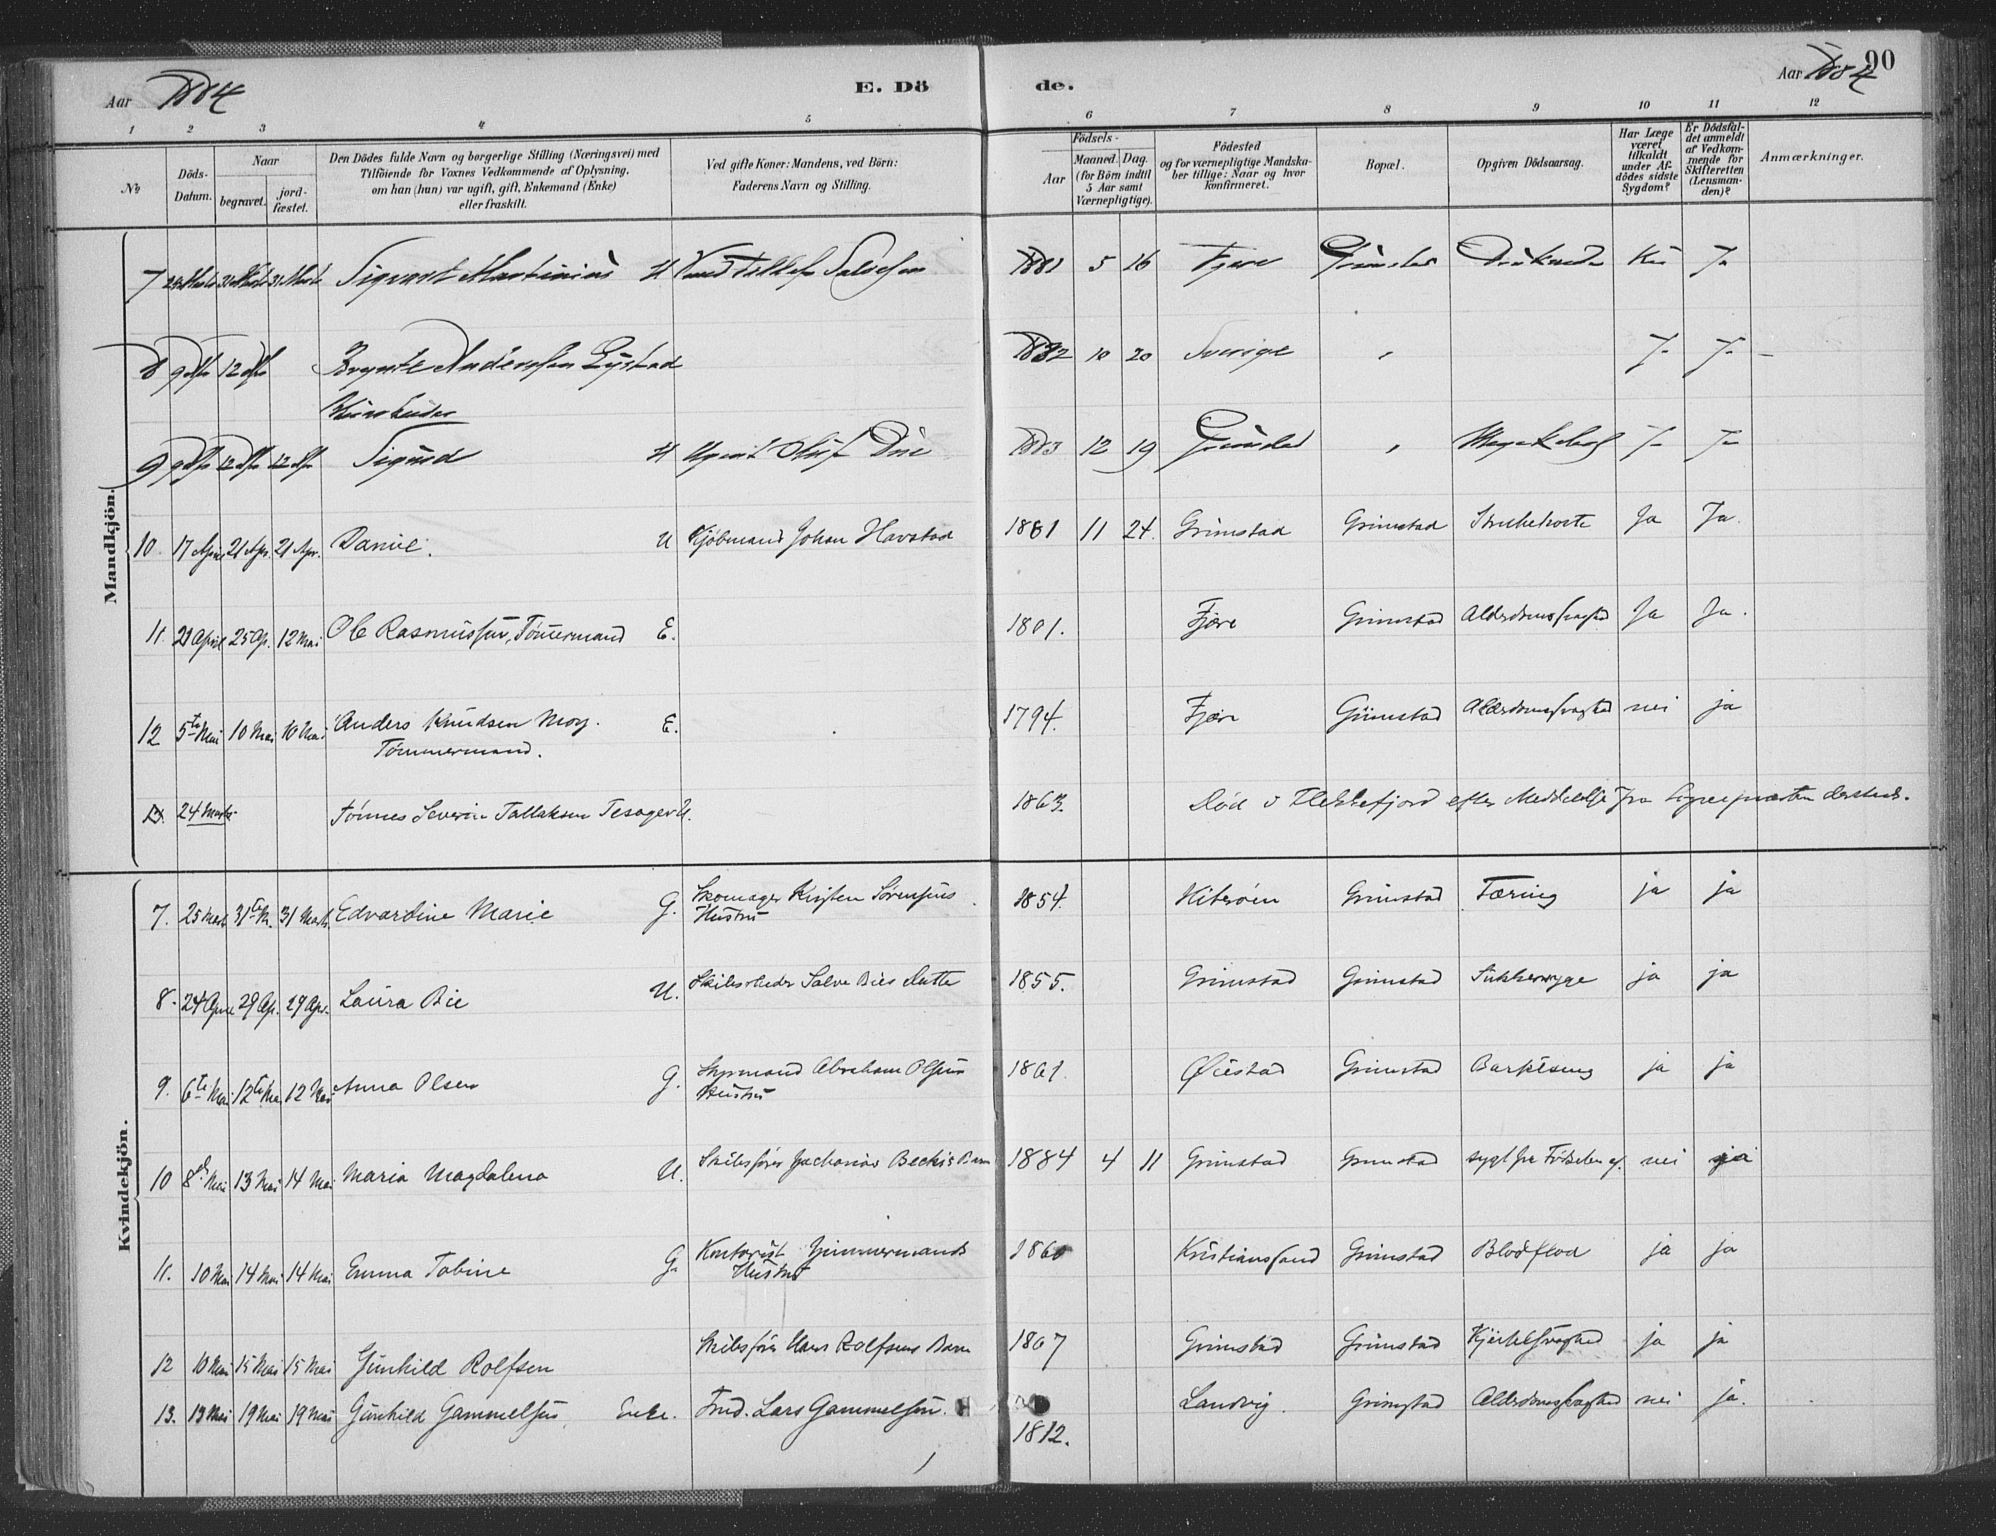 Aar 1884
E. Dö
de.
Aar 1884
90
1 2 3 4 5 6 7 8 9 10 11 12
№
Döds-Datum.
Naar begravet. jordfæstet.
Den Dödes fulde Navn og borgerlige Stilling (Næringsvei) med
Tilföiende for Voxnes Vedkommende af Oplysning,
om han (hun) var ugift, gift, Enkemand (Enke)
eller fraskilt.
Ved gifte Koner: Mandens, ved Börn:
Faderens Navn og Stilling.
Födsels-
Aar
Maaned. Dag.
(for Börn indtil
5 Aar samt
Værnepligtige).
Födested
og for værnepligtige Mandska-
ber tillige: Naar og hvor
konfirmeret.
Bopæl.
Opgiven Dödsaarsag.
Har Læge
været
tilkaldt
under Af-
dödes sidste
Sygdom?
Er Dödsfal-
det anmeldt
af Vedkom-
mende for
Skifteretten
(Lensman-
den)?
Anmærkninger.
Mandkjön.
7 Marts 31 Marts Martinius U 1881 5 16 Fjære Grimstad Ja
8 9 12 Anderssen 10 20 Sverige " Ja Ja
9 9 12 12 Sigurd U Agent Oluf 1883 12 19 Grimstad " Ja Ja
10. 17 April 21 Apr. 21 Apr. Daniel. U Kjøbmand Johan Havstad 1881 11 24. Grimstad Grimstad Strubehoste Ja Ja.
11. 21 April 25 Ap. 12 Mai Ole Rasmussen, Tømmermand E. 1801. Fjære Grimstad Alderdomssvaghed Ja Ja.
12 5te Mai 10 Mai 10 Mai Anders Knudsen Moy. E. 1794. Fjære Grimstad Alderdomssvaghed nei ja
Tømmermand.
24 Marts. Tønnes Severin Tallaksen U. 1863. Død i Flekkefjord efter Meddelelse fra Sognepræsten dersteds.
Kvindekjön.
7. 25 Marts 31te M. 31 Marts Edvardine Marie G. Skomager Kristen Sørensens 1854. Hiterøen Grimstad Tæring ja ja
Hustru
8. 24 April 29 Ap. 29 Apr. Laura Bie U. Skibsreder Salve Bies Datter 1855. Grimstad Grimstad Sukkersyge ja ja
9. 6te Mai 12te Mai 12 Mai Anna Olsen G. Styrmand Abraham Olsens 1861. Øiestad Grimstad Barselseng ja ja
Hustru
10 8de Mai 13 Mai 14 Mai Maria Magdalena U. Skibsfører Zacharias Beckis Barn 1884 4 11 Grimstad Grimstad sygt fra Fødselen af. nei ja
11. 10 Mai 14 Mai 14 Mai Emma Tobine G. Kontorist Zimmermands 1860 Kristianssand Grimstad Blodflod ja ja
Hustru
12 10 Mai 15 Mai 15 Mai Gunhild Rolfsen Skibsfører Hans Rolfsens Barn 1867 Grimstad Grimstad ja ja
13. 13 Mai 19 Mai 19 Mai Gunhild Gammelsen, Enke. Lars Gammelsen. Landvig. Grimstad Alderdomssvaghed nei ja.
1812.